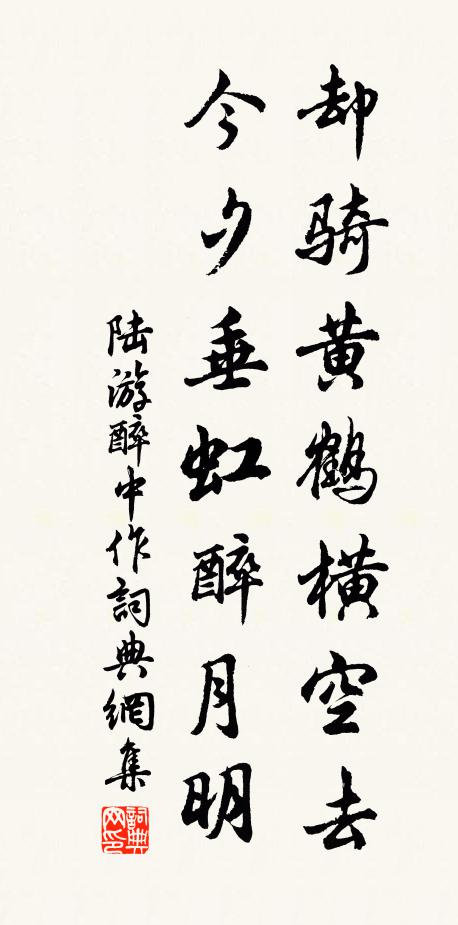 却骑黄鹤横空去
今夕垂虹醉月明
陆游醉中作詞典網集
詞典网印